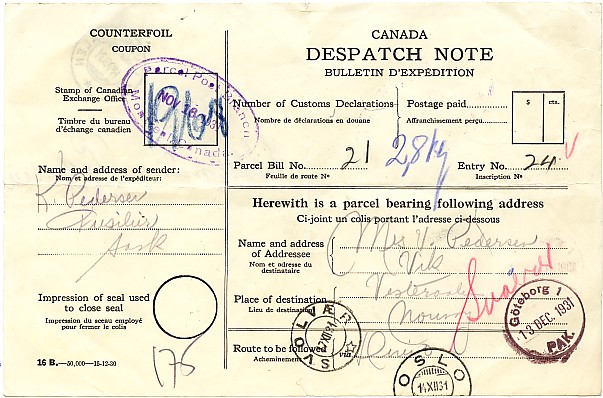 COUNTERFOIL
COUPON
Stamp of Canadian
Exchange Office
Timbre du bureau
d'échange canadien
Parcel Post Branch
NOV 16 1931
Montreal Canada
Name and address of sender:
Nom et adresse de l'expéditeur:
K. Pedersen
Fusilier
Sask
Impression of seal used
to close seal
Impression du sceau employé
pour fermer le colis
175
16 B.—50,000—15-12-30
CANADA
DESPATCH NOTE
BULLETIN D'EXPÉDITION
Number of Customs Declarations
Nombre de déclarations en douane
Postage paid
Affranchissement perçu.
$ cts.
Parcel Bill No. 21
Feuille de route Nº
2,8 kg
Entry No. 24
Inscription Nº
Herewith is a parcel bearing following address
Ci-joint un colis portant l'adresse ci-dessous
Name and address
of Addressee
Nom et adresse du
destinataire
Mrs V. Pedersen
Vik
Place of destination
Lieu de destination
Svolvær
Route to be followed
Acheminement
via
SVOLVÆR
XII 31
OSLO
14 XII 31
Göteborg 1
13 DEC. 1931
PAK.